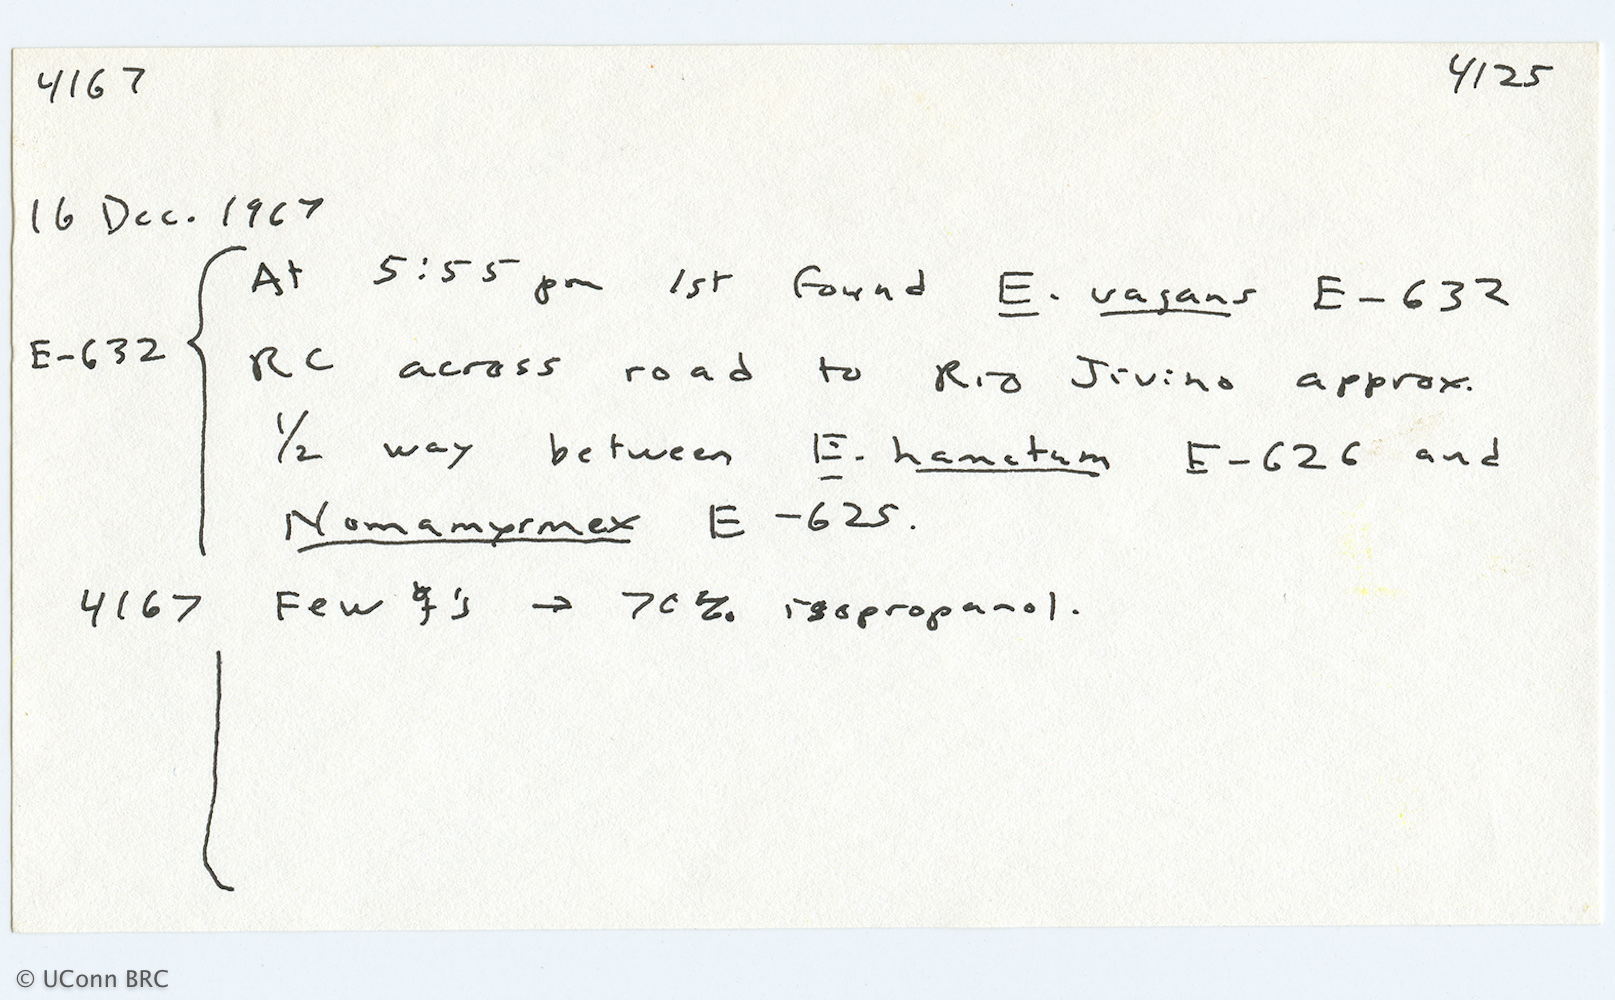 4167 4125
16 Dec. 1967
At 5:55 pm 1st found E. vagans E-632
E-632 RC across road to Rio Jivino approx.
1/2 way between E. hamatum E-626 and
Nomamyrmex E-625.
4167 Few ☿'s → 70% isopropanol.
© UConn BRC